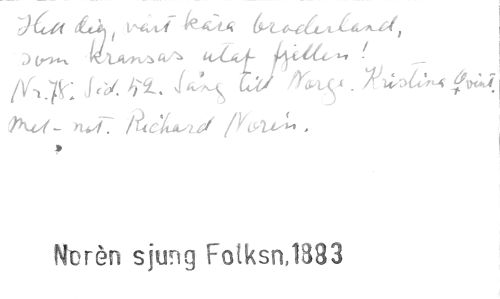 Hell dig, vårt kära broderland,
som kransas utaf fjellen!
Nr. 78. Sid. 52. Sång till Norge. Kristina Qvint.
Mel-not. Richard Norén.
Norèn sjung Folksn,1883